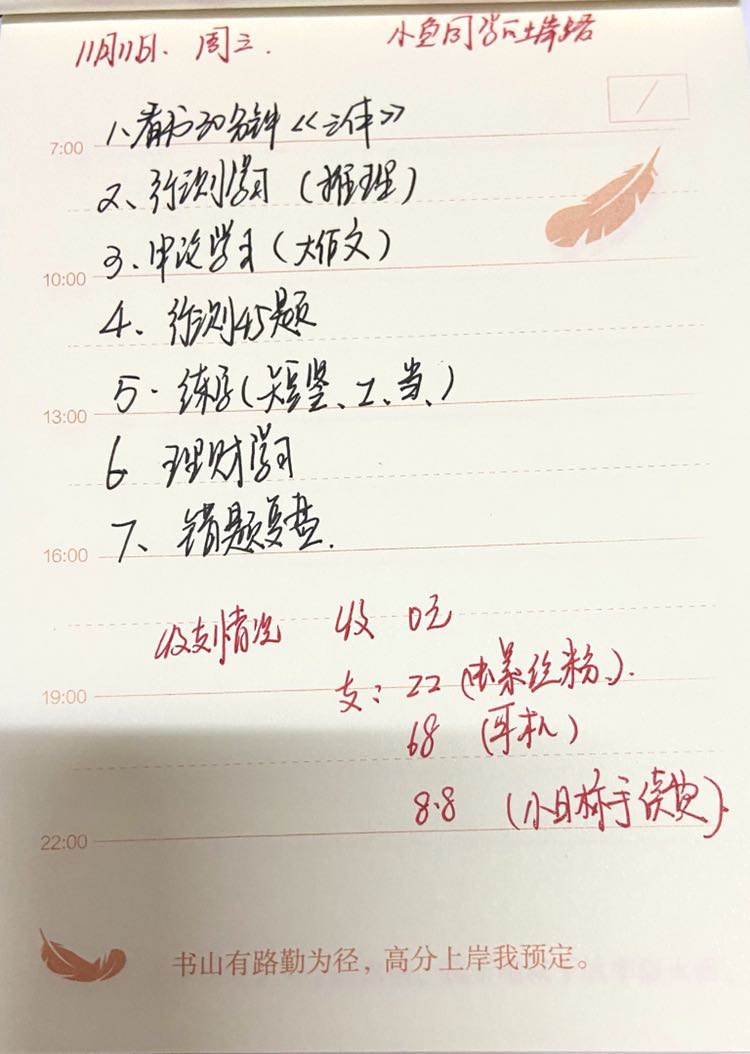 11月11日. 周三. 小鱼同学的上岸路
7:00 1、看书30分钟《三体》
2、行测学习（推理）
3、申论学习（大作文）
10:00
4、行测45题
5.练字（竖、工、当、）
13:00
6 理财学习
7、错题复盘.
16:00
收支情况 收 0元
支：22（螺丝粉）.
19:00
68（耳机）
8.8（小目标手续费）.
22:00
书山有路勤为径，高分上岸我预定。